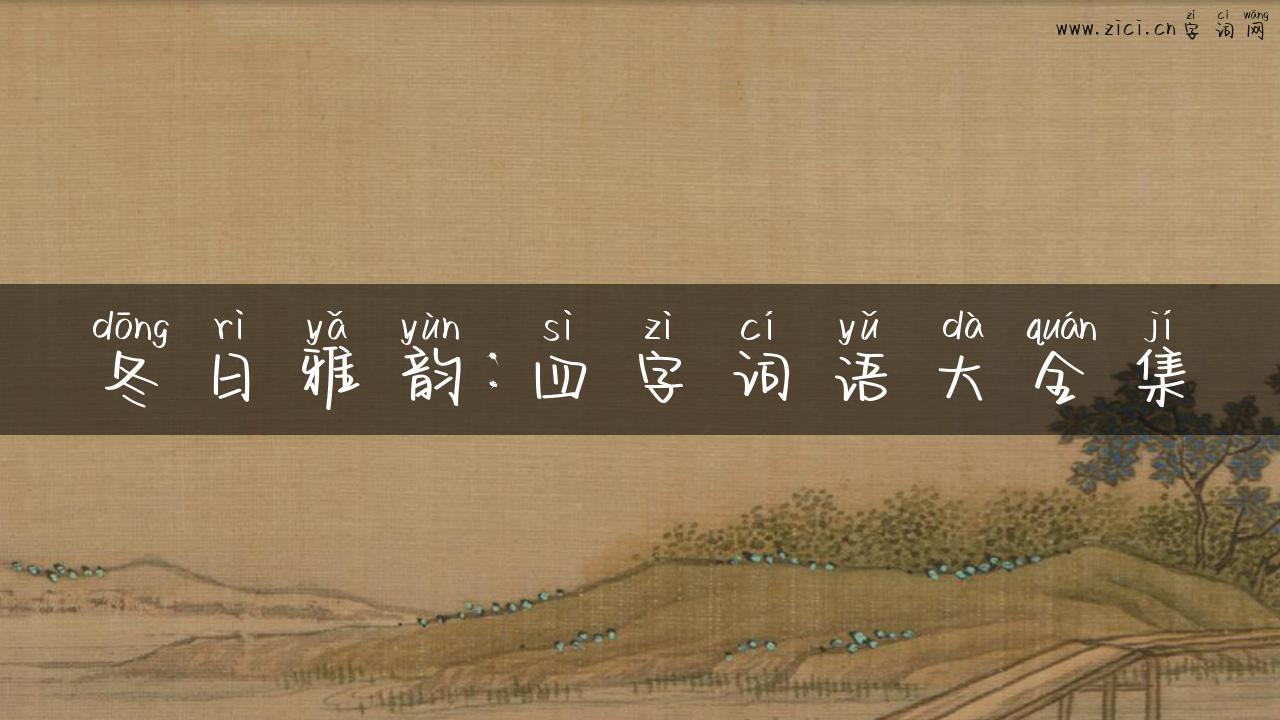 zì cí wǎng
www.zici.cn字词网
dōng rì yǎ yùn sì zì cí yǔ dà quán jí
冬日雅韵:四字词语大全集